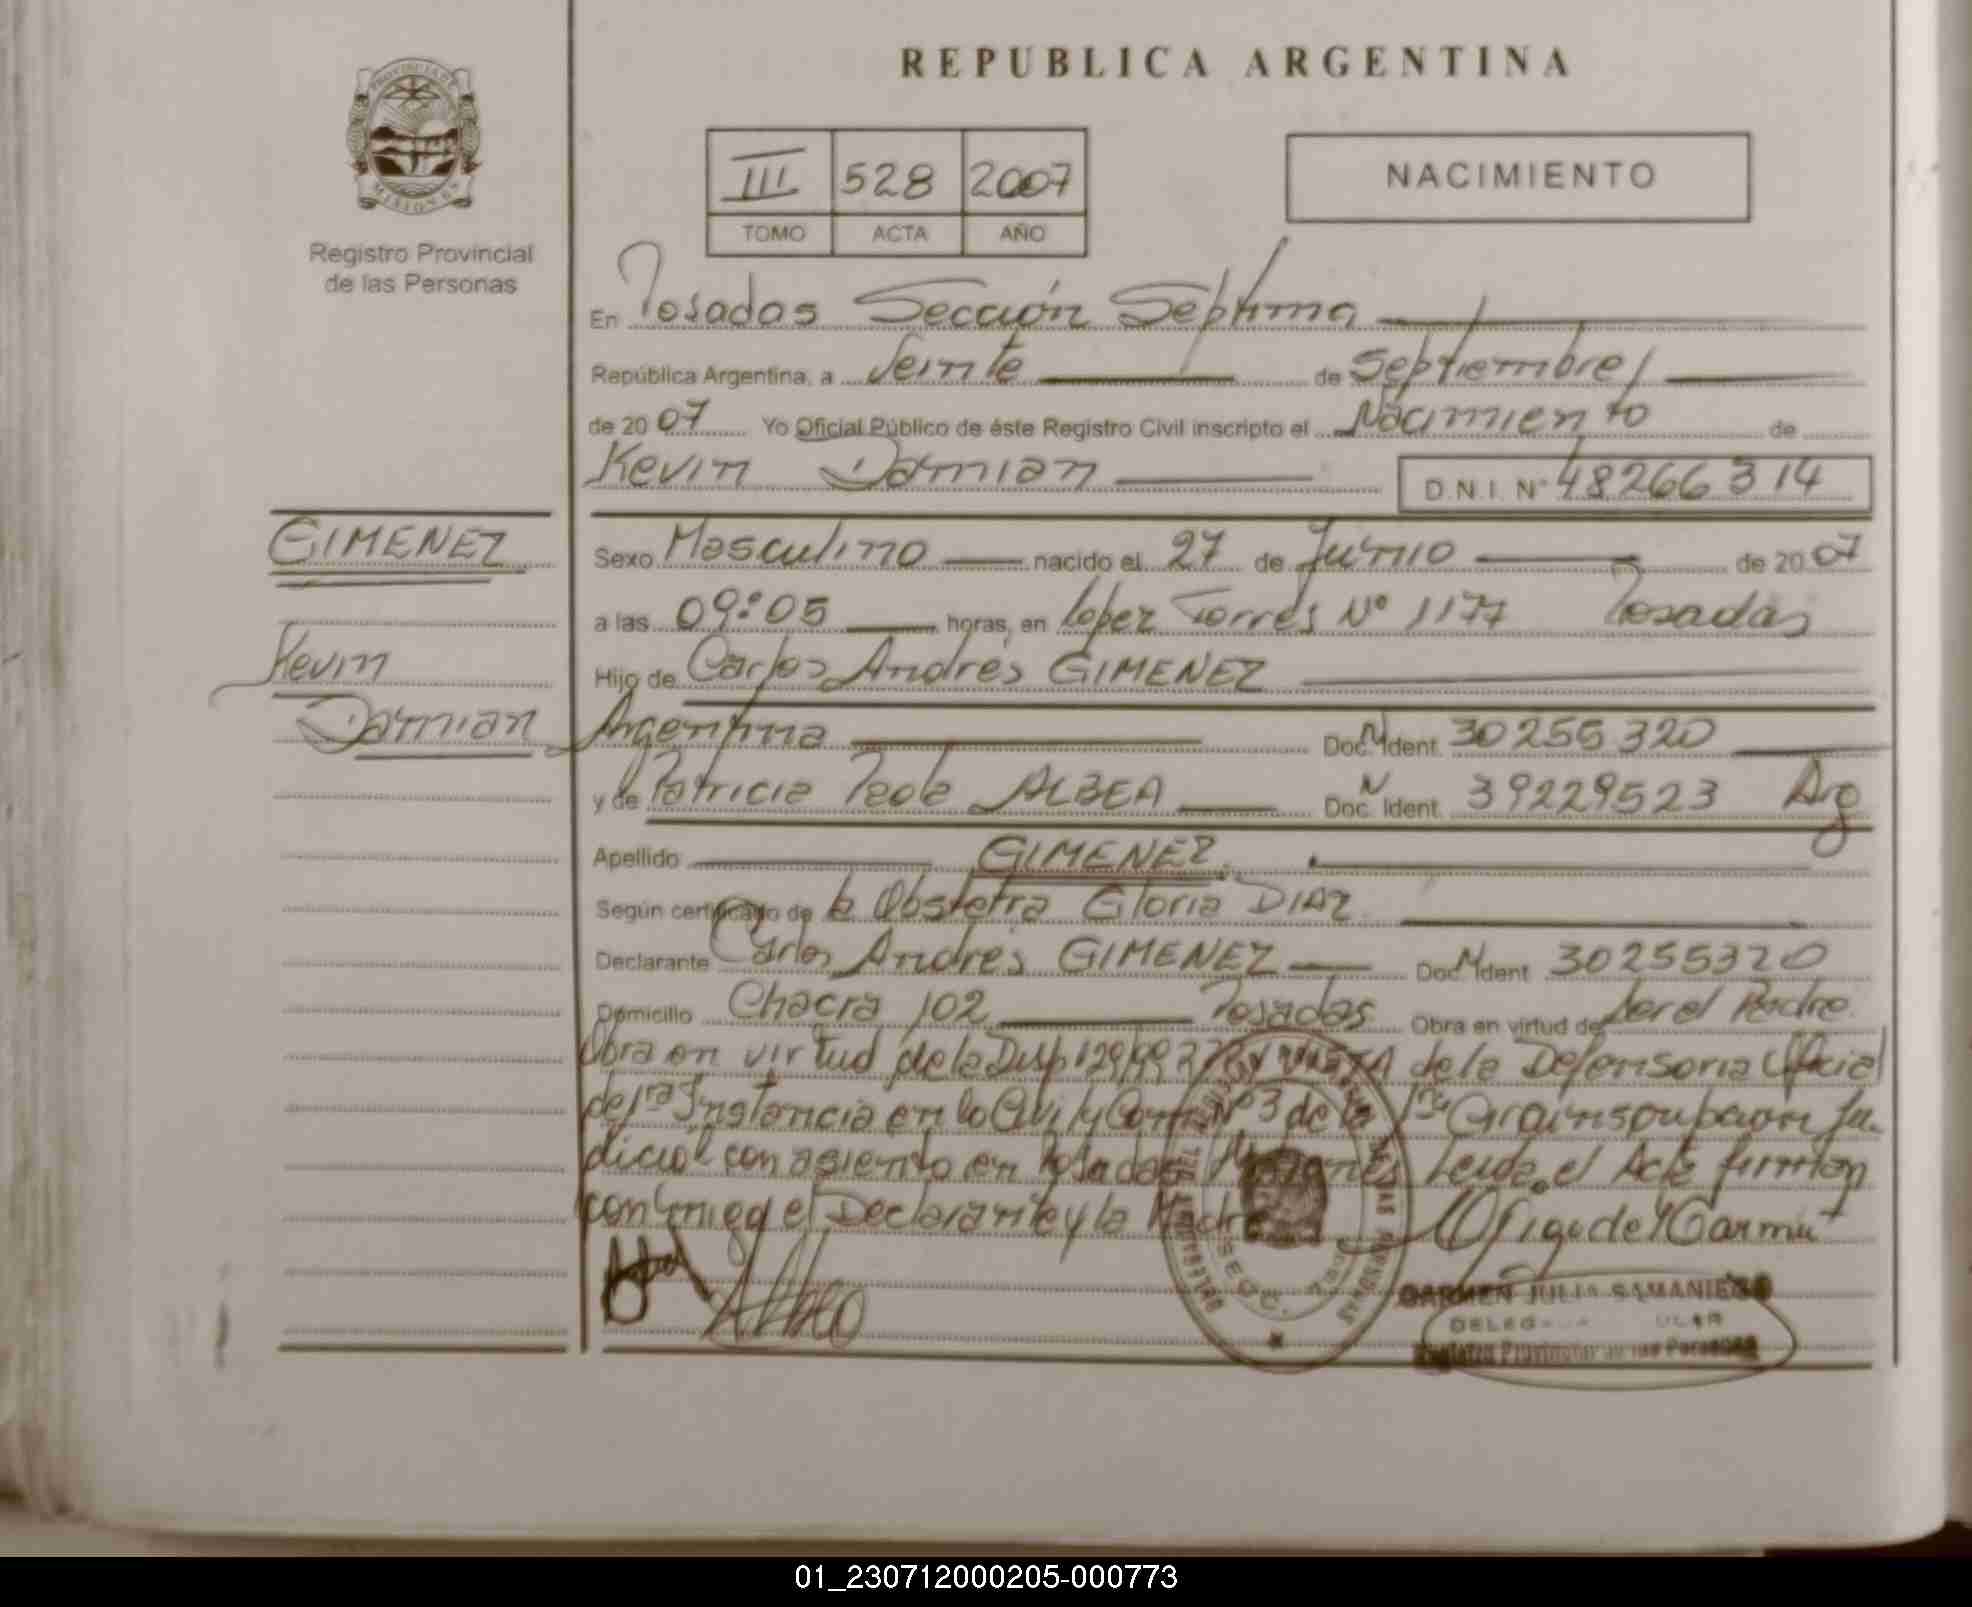 REPUBLICA ARGENTINA
PROVINCIA DE
MISIONES
Registro Provincial
de las Personas
III 528 2007
TOMO ACTA AÑO
NACIMIENTO
En Posadas Sección Septima
República Argentina, a Veinte de Septiembre
de 2007 Yo Oficial Público de éste Registro Civil inscripto el Nacimiento de
Kevin Damian D.N.I. Nº 48266314
GIMENEZ
Kevin
Damian
Sexo Masculino nacido el 27 de Junio de 2007
a las 09:05 horas, en Lopez Torres Nº 1177 Posadas
Hijo de Carlos Andrés GIMENEZ
Argentina Doc. N Ident. 30255320
y de Patricia Paola ALBEA Doc. N Ident. 39229523 Arg
Apellido GIMENEZ
Según certificado de la Obstetra Gloria DIAZ
Declarante Carlos Andrés GIMENEZ Doc. N Ident 30255320
Domicilio Chacra 102 Posadas Obra en virtud de Ser el Padre.
Obra en virtud de la Disp 129/99 de la Defensoria Oficial
de 1ra Instancia en lo Civil y Com. Nº 3 de la 1ra Circunscripcion Ju-
dicial con asiento en Posadas Misiones Leida el Acta firman
conmigo el Declarante y la Madre
CARMEN JULIA SAMANIEGO
Registro Provincial de las Personas
01_230712000205-000773